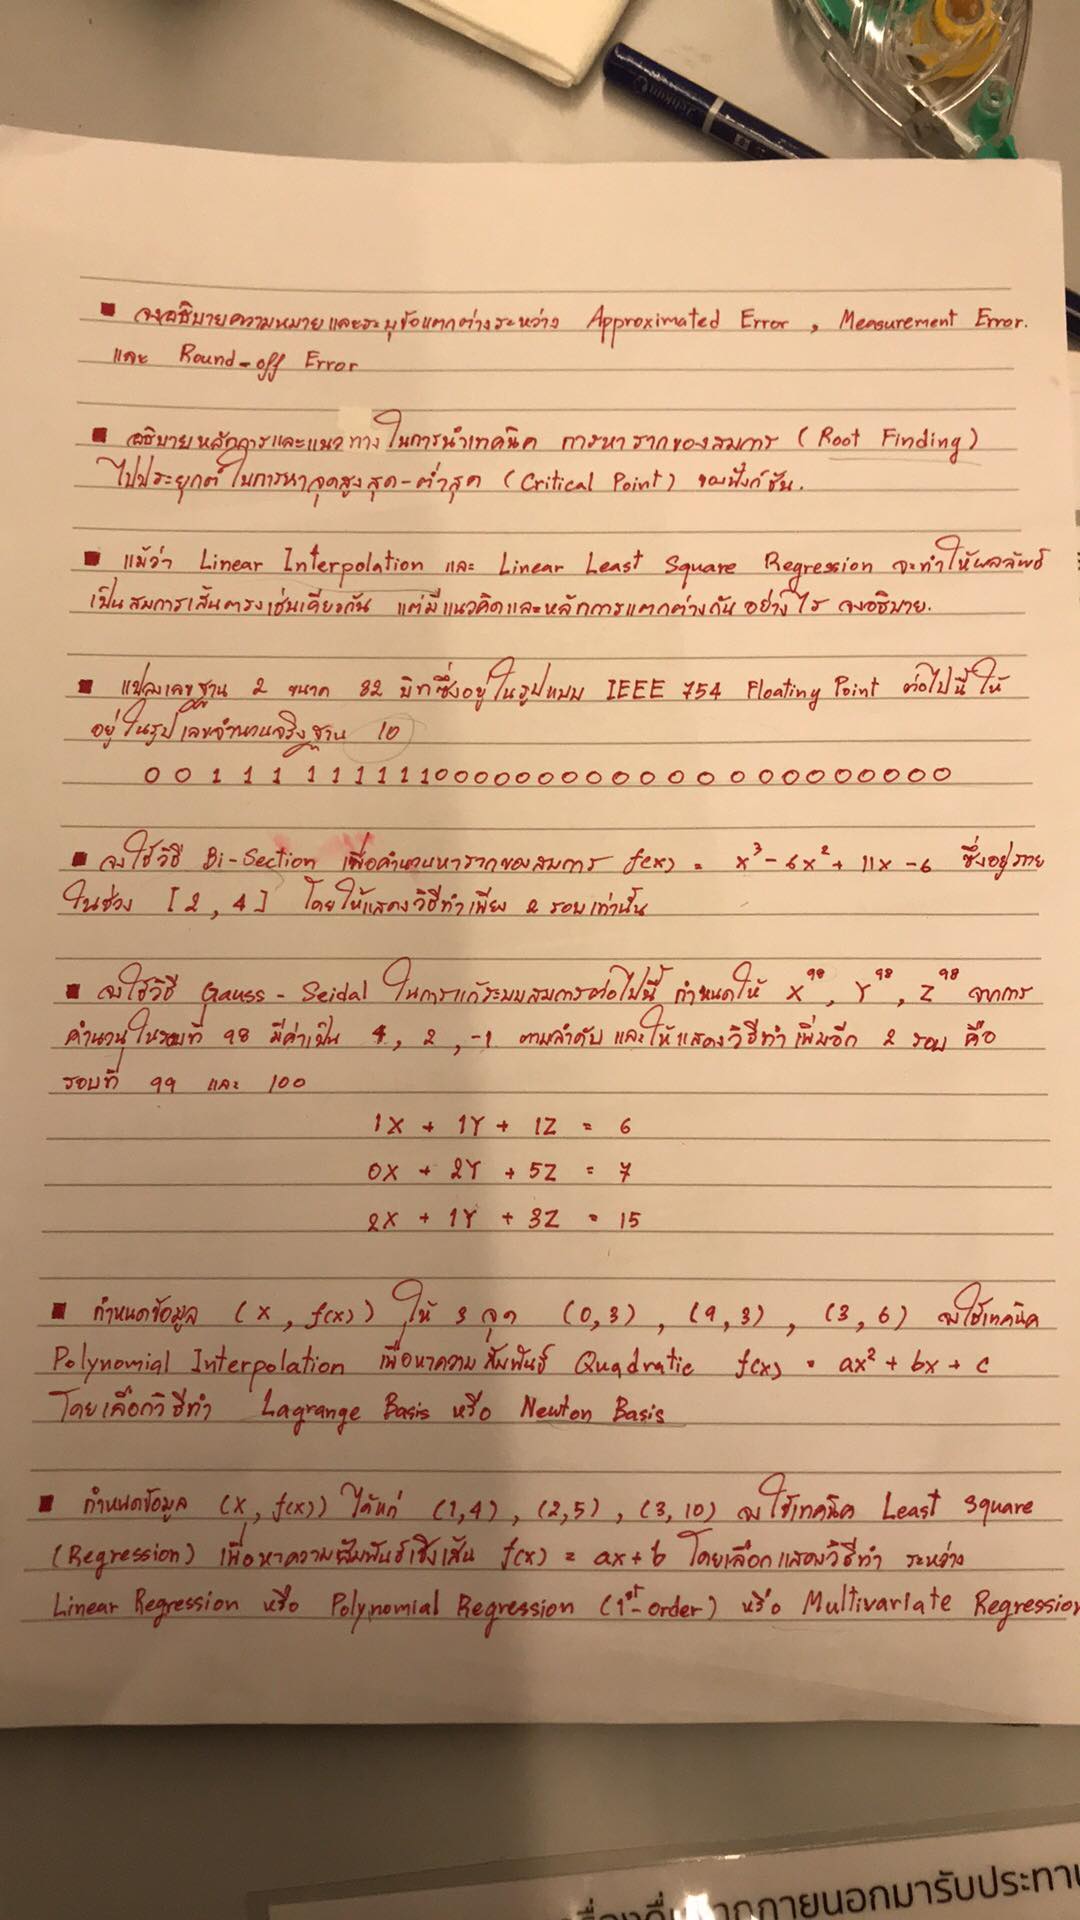 Zebkun
จงอธิบายความหมายและระบุข้อแตกต่างระหว่าง Approximated Error , Measurement Error.
และ Round-off Error
อธิบายหลักการและแนวทางในการนำเทคนิค การหารากของสมการ (Root Finding)
ไปประยุกต์ในการหาจุดสูงสุด-ต่ำสุด (Critical Point) ของฟังก์ชัน.
แม้ว่า Linear Interpolation และ Linear Least Square Regression จะทำให้ผลลัพธ์
เป็นสมการเส้นตรงเช่นเดียวกัน แต่มีแนวคิดและหลักการแตกต่างกันอย่างไร จงอธิบาย.
แปลงเลขฐาน 2 ขนาด 32 บิทซึ่งอยู่ในรูปแบบ IEEE 754 Floating Point ต่อไปนี้ให้
อยู่ในรูปเลขจำนวนจริงฐาน 10
0 0 1 1 1 1 1 1 1 1 1 0 0 0 0 0 0 0 0 0 0 0 0 0 0 0 0 0 0 0 0 0
จงใช้วิธี Bi-Section เพื่อคำนวนหารากของสมการ f(x) = x³ - 6x² + 11x - 6 ซึ่งอยู่ภาย
ในช่วง [2, 4] โดยให้แสดงวิธีทำเพียง 2 รอบเท่านั้น
จงใช้วิธี Gauss - Seidal ในการแก้ระบบสมการต่อไปนี้ กำหนดให้ X⁹⁸, Y⁹⁸, Z⁹⁸ จากการ
คำนวนในรอบที่ 98 มีค่าเป็น 4, 2, -1 ตามลำดับ และให้แสดงวิธีทำเพิ่มอีก 2 รอบ คือ
รอบที่ 99 และ 100
1X + 1Y + 1Z = 6
0X + 2Y + 5Z = 7
2X + 1Y + 3Z = 15
กำหนดข้อมูล (x, f(x)) ให้ 3 จุด (0,3), (9,3), (3,6) จงใช้เทคนิค
Polynomial Interpolation เพื่อหาความสัมพันธ์ Quadratic f(x) = ax² + bx + c
โดยเลือกวิธีทำ Lagrange Basis หรือ Newton Basis
กำหนดข้อมูล (x, f(x)) ได้แก่ (1,4), (2,5), (3,10) จงใช้เทคนิค Least Square
(Regression) เพื่อหาความสัมพันธ์เชิงเส้น f(x) = ax+b โดยเลือกแสดงวิธีทำ ระหว่าง
Linear Regression หรือ Polynomial Regression (1st-order) หรือ Multivariate Regression
ภายนอกมารับประทาน